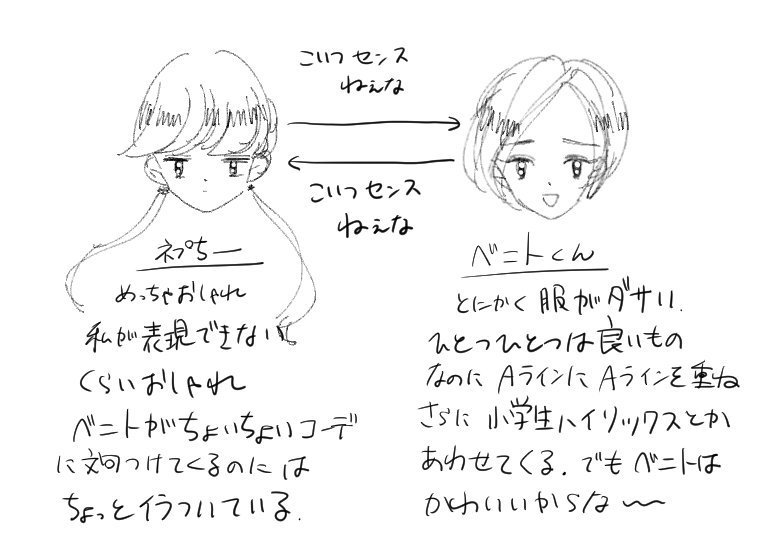 こいつセンス
ねぇな
こいつセンス
ねぇな
ネプちー
めっちゃおしゃれ
私が表現できない
くらいおしゃれ
ベニトがちょいちょいコーデ
に文句つけてくるのには
ちょっとイラついている.
ベニトくん
とにかく服がダサい.
ひとつひとつは良いもの
なのにAラインにAラインを重ね
さらに小学生ハイソックスとか
あわせてくる.でもベニトは
かわいいからな〜